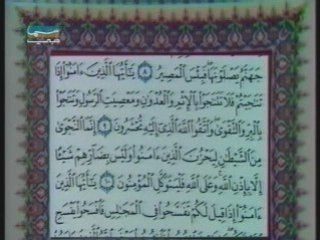 جَهَنَّمُ يَصْلَوْنَهَا فَبِئْسَ الْمَصِيرُ ٨ يَٰٓأَيُّهَا الَّذِينَ ءَامَنُوٓا۟ إِذَا
تَنَٰجَيْتُمْ فَلَا تَتَنَٰجَوْا۟ بِالْإِثْمِ وَالْعُدْوَٰنِ وَمَعْصِيَتِ الرَّسُولِ وَتَنَٰجَوْا۟
بِالْبِرِّ وَالتَّقْوَىٰ وَاتَّقُوا۟ اللَّهَ الَّذِىٓ إِلَيْهِ تُحْشَرُونَ ٩ إِنَّمَا النَّجْوَىٰ
مِنَ الشَّيْطَٰنِ لِيَحْزُنَ الَّذِينَ ءَامَنُوا۟ وَلَيْسَ بِضَآرِّهِمْ شَيْـًٔا
إِلَّا بِإِذْنِ اللَّهِ وَعَلَى اللَّهِ فَلْيَتَوَكَّلِ الْمُؤْمِنُونَ ١٠ يَٰٓأَيُّهَا الَّذِينَ
ءَامَنُوٓا۟ إِذَا قِيلَ لَكُمْ تَفَسَّحُوا۟ فِى الْمَجَٰلِسِ فَافْسَحُوا۟ يَفْسَحِ